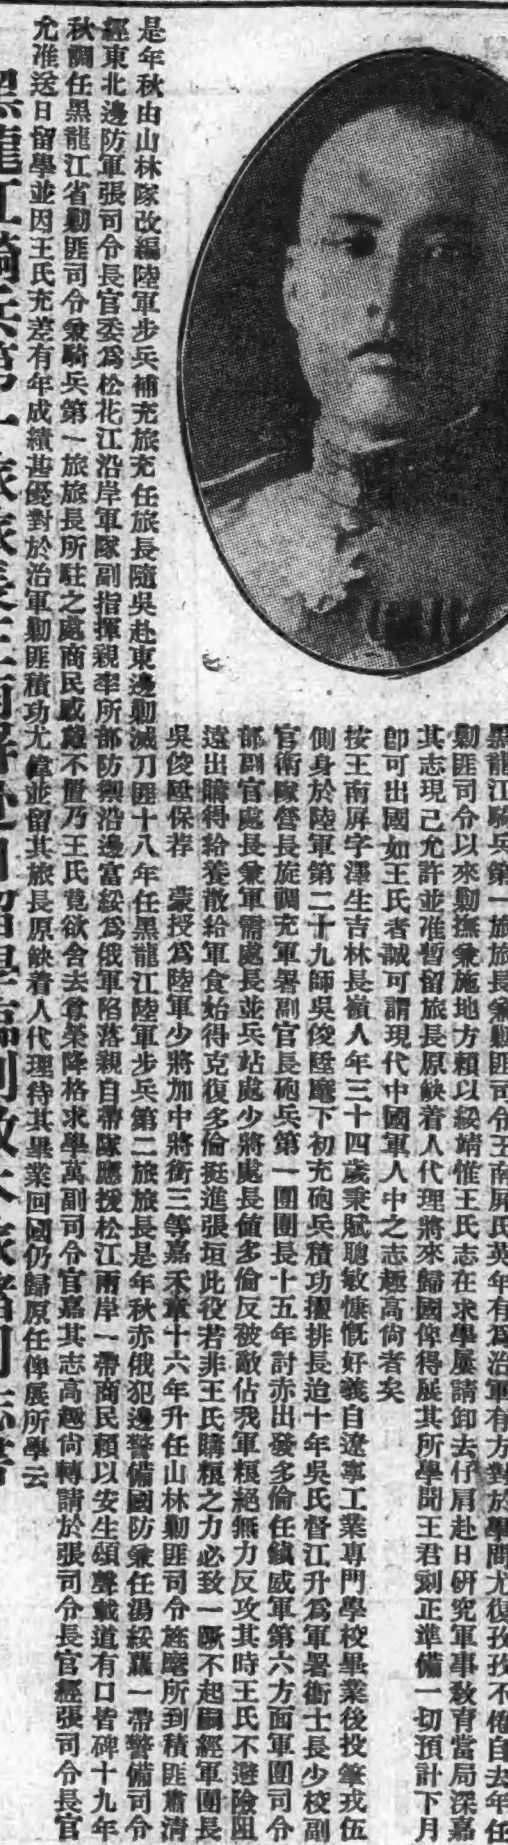 黑龍江騎兵第一旅旅長兼剿匪司令王南屏氏英年有爲治軍有方對於學問尤復孜孜不倦自去年任
剿匪司令以來剿撫兼施地方賴以綏靖惟王氏志在求學屢請卸去仔肩赴日研究軍事教育當局深嘉
其志現已允許並准暫留旅長原缺着人代理將來歸國俾得展其所學聞王君刻正準備一切預計下月
卽可出國如王氏者誠可謂現代中國軍人中之志趣高尙者矣
按王南屏字澤生吉林長嶺人年三十四歲秉賦聰敏慷慨好義自遼寧工業專門學校畢業後投筆戎伍
側身於陸軍第二十九師吳俊陞麾下初充砲兵積功擢排長迨十年吳氏督江升爲軍署衞士長少校副
官衞隊營長旋調充軍署副官長砲兵第一團團長十五年討赤出發多倫任鎮威軍第六方面軍團司令
部副官處長兼軍需處長並兵站處少將處長値多倫反被敵佔我軍糧絕無力反攻其時王氏不避險阻
遠出購得給養散給軍食始得克復多倫挺進張垣此役若非王氏購糧之力必致一蹶不起嗣經軍團長
吳俊陞保荐 蒙授爲陸軍少將加中將銜三等嘉禾章十六年升任山林剿匪司令旌麾所到積匪肅清
是年秋由山林隊改編陸軍步兵補充旅充任旅長隨吳赴東邊剿滅刀匪十八年任黑龍江陸軍步兵第二旅旅長是年秋赤俄犯邊警備國防兼任湯綏蘿一帶警備司令
經東北邊防軍張司令長官委爲松花江沿岸軍隊副指揮親率所部防禦沿邊富綏爲俄軍陷落親自帶隊應援松江兩岸一帶商民賴以安生頌聲載道有口皆碑十九年
秋調任黑龍江省剿匪司令兼騎兵第一旅旅長所駐之處商民感戴不置乃王氏竟欲舍去尊榮降格求學萬副司令官嘉其志高趣尙轉請於張司令長官經張司令長官
允准送日留學並因王氏充差有年成績甚優對於治軍剿匪積功尤偉並留其旅長原缺着人代理待其畢業回國仍歸原任俾展所學云
黑龍江騎兵第一旅旅長王南屏赴日留學